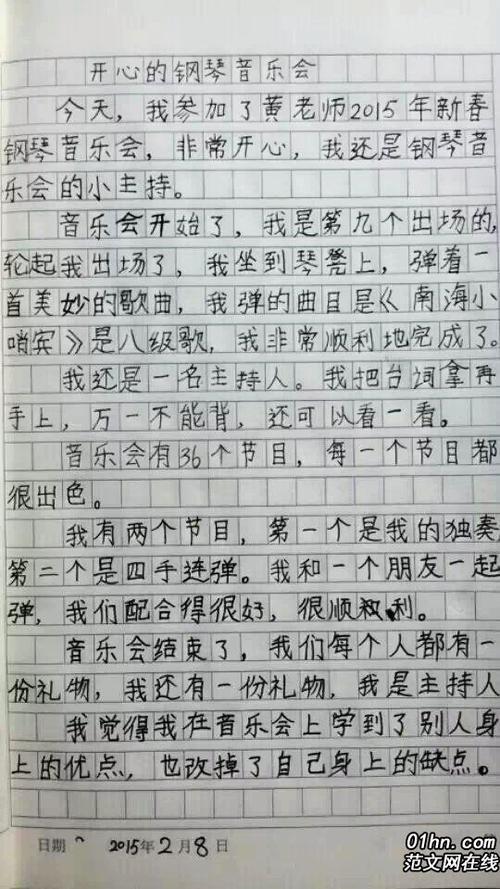 开心的钢琴音乐会
今天，我参加了黄老师2015年新春
钢琴音乐会，非常开心，我还是钢琴音
乐会的小主持。
音乐会开始了，我是第九个出场的，
轮起我出场了，我坐到琴凳上，弹着一
首美妙的歌曲，我弹的曲目是《南海小
哨宾》是八级歌，我非常顺利地完成了。
我还是一名主持人。我把台词拿再
手上，万一不能背，还可以看一看。
音乐会有36个节目，每一个节目都
很出色。
我有两个节目，第一个是我的独奏
第二个是四手连弹。我和一个朋友一起
弹，我们配合得很好，很顺利。
音乐会结束了，我们每个人都有一
份礼物，我还有一份礼物，我是主持人
我觉得我在音乐会上学到了别人身
上的优点，也改掉了自己身上的缺点。
日期 2015年2月8日
01hn.com
范文网在线